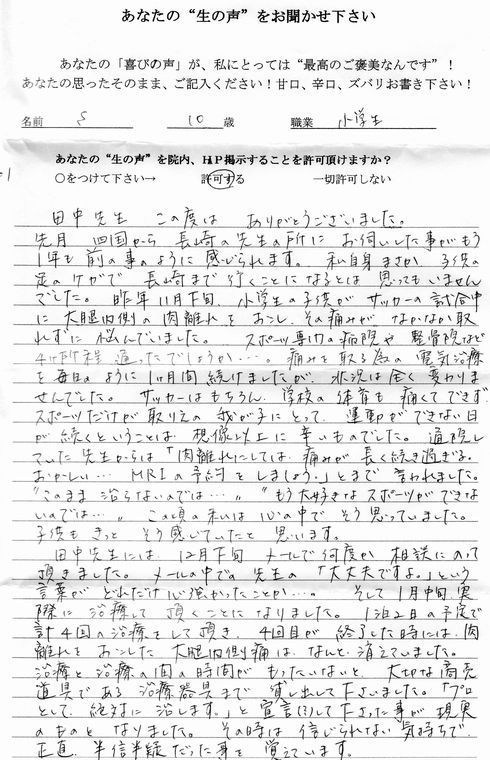 あなたの“生の声”をお聞かせ下さい
あなたの「喜びの声」が、私にとっては“最高のご褒美なんです”！
あなたの思ったそのまま、ご記入ください！甘口、辛口、ズバリお書き下さい！
名前 S 10 歳 職業 小学生
あなたの“生の声”を院内、HP掲示することを許可頂けますか？
○をつけて下さい→ 許可する 一切許可しない
田中先生 この度は ありがとうございました。
先月 四国から 長崎の先生の所に お伺いした事がもう
1年も前の事のように感じられます。 私自身まさか 子供の
足のけがで 長崎まで行くことになるとは 思ってもいません
でした。 昨年11月下旬、小学生の子供が サッカーの試合中
に大腿内側の肉離れをおこし、その痛みが なかなか取
れずに悩んでいました。 スポーツ専門の病院や 整骨院など
4ヶ所程 通ったでしょうか…。 痛みを取る為の 電気治療
を毎日のように 1ヶ月間続けましたが、状況は全く変わりま
せんでした。 サッカーはもちろん、学校の体育も痛くてできず
スポーツだけが取りえの 我が子にとって、運動ができない日
が続くということは 想像以上に辛いものでした。 通院し
ていた先生からは「肉離れにしては 痛みが長く続き過ぎる。
おかしい… MRIの予約をしましょう。」とまで言われました。
“このまま治らないのでは…” “もう大好きなスポーツができな
いのでは…” この頃の私は 心の中でそう思っていました。
子供もきっと そう感じていたと思います。
田中先生には 12月下旬 メールで何度か 相談にのって
頂きました。 メールの中での 先生の「大丈夫ですよ。」という
言葉が どれだけ心強かったことか…。 そして 1月中旬、実
際に治療して 頂くことになりました。 1泊2日の予定で
計4回の治療をして頂き、4回目が終了した時には、肉
離れをおこした大腿内側痛は、なんと消えていました。
治療と治療の間の時間がもったいないと 大切な商売
道具である治療器具まで 貸し出して下さいました。「プロ
として 絶対に治します。」と宣言して下さった事が現実
のものとなりました。 その時は信じられない気持ちで、
正直、半信半疑だった事を覚えています。